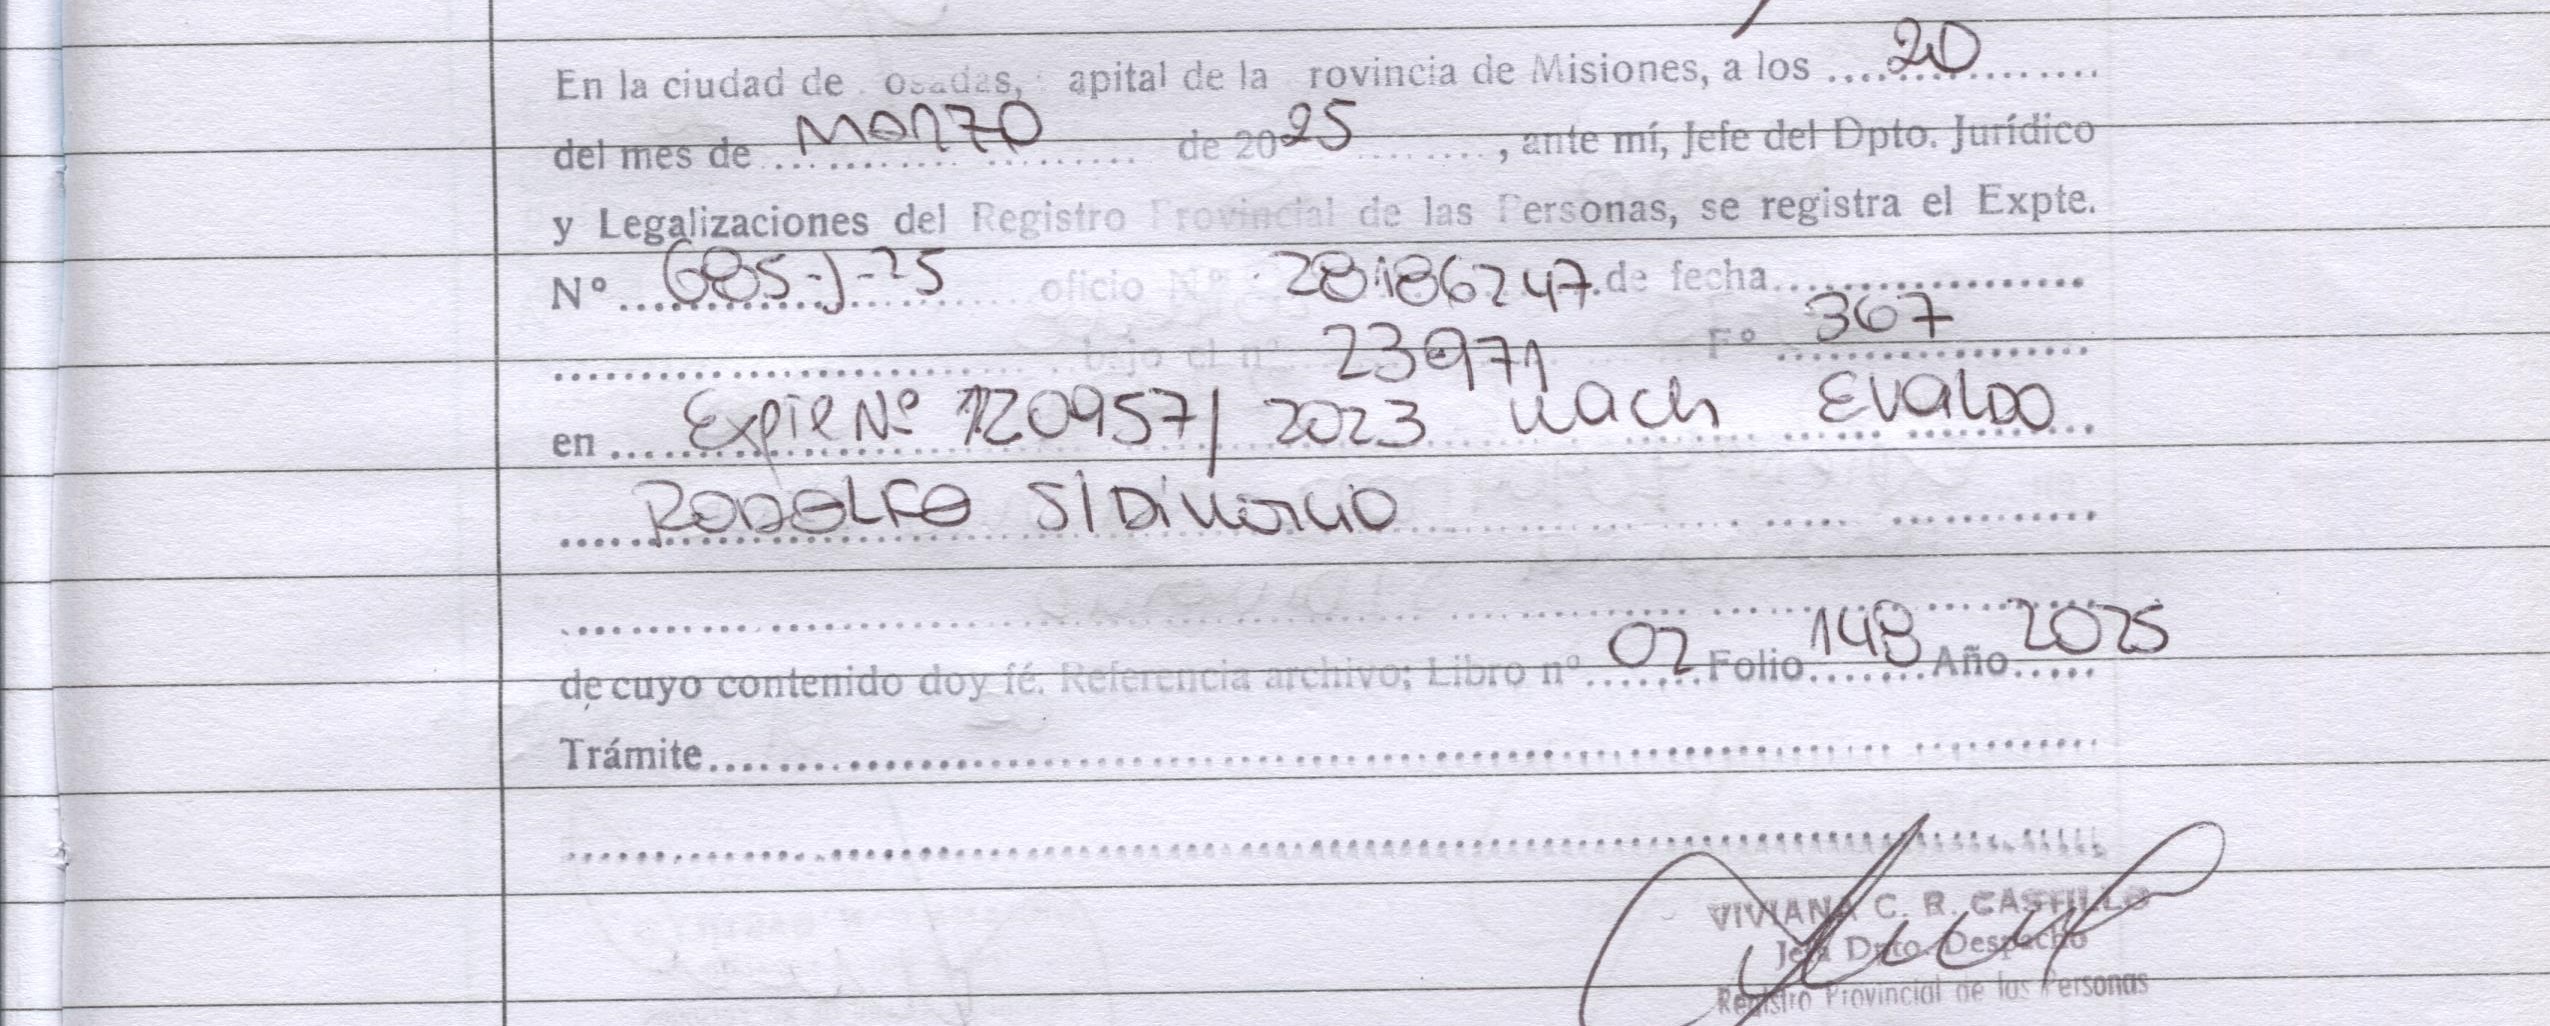 En la ciudad de osadas, apital de la rovincia de Misiones, a los 20
del mes de Marzo de 2025, ante mí, Jefe del Dpto. Jurídico
y Legalizaciones del Registro Provincial de las Personas, se registra el Expte.
Nº 685-J-25 oficio Nº 28186247 de fecha
bajo el nº 23971 Fº 367
en Expte Nº 120957/2023 EVALDO
RODOLFO S/Divorcio
de cuyo contenido doy fé. Referencia archivo; Libro nº 02 Folio 148 Año 2025
Trámite
VIVIANA C. R. CASTILLO
Jefa Dpto. Despacho
Registro Provincial de las Personas